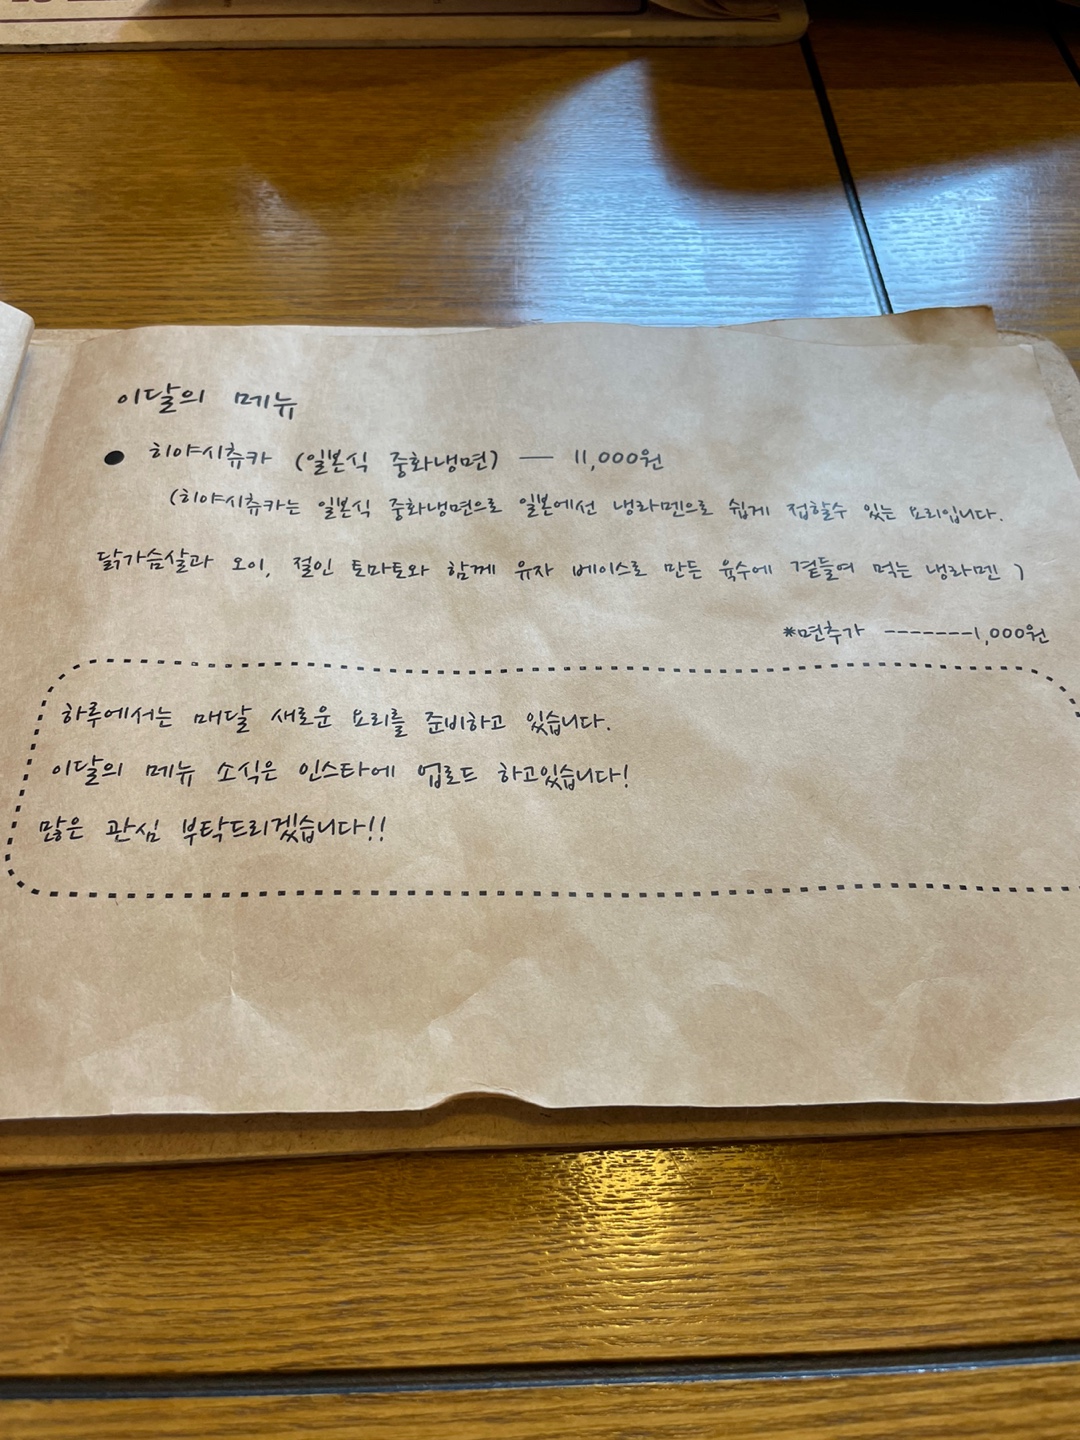 이달의 메뉴
● 히야시츄카 (일본식 중화냉면) — 11,000원
(히야시츄카는 일본식 중화냉면으로 일본에선 냉라멘으로 쉽게 접할수 있는 요리입니다.
닭가슴살과 오이, 절인 토마토와 함께 유자 베이스로 만든 육수에 곁들여 먹는 냉라멘 )
*면추가 -------1,000원
하루에서는 매달 새로운 요리를 준비하고 있습니다.
이달의 메뉴 소식은 인스타에 업로드 하고있습니다!
많은 관심 부탁드리겠습니다!!